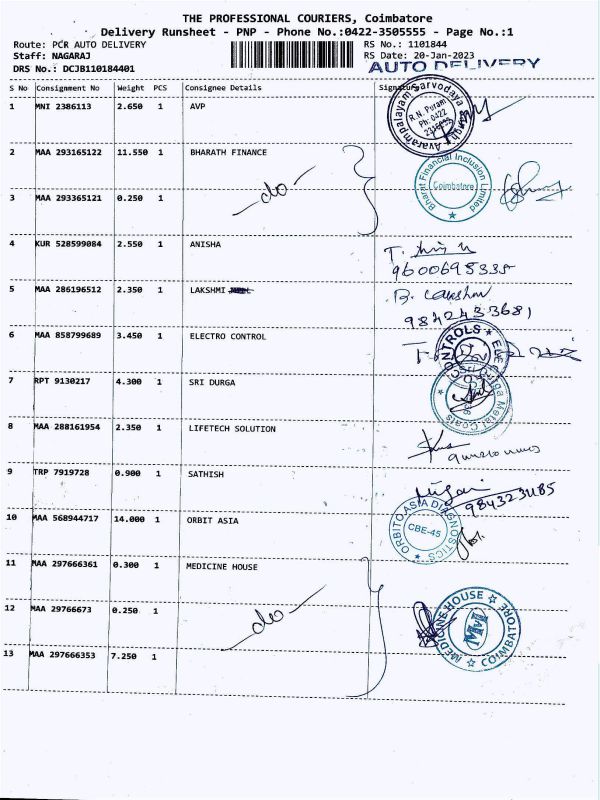 THE PROFESSIONAL COURIERS, Coimbatore
Delivery Runsheet - PNP - Phone No.:0422-3505555 - Page No.:1
Route: PCR AUTO DELIVERY
RS No.: 1101844
Staff: NAGARAJ
RS Date: 20-Jan-2023
DRS No.: DCJB110184401
AUTO DELIVERY
S No Consignment No Weight PCS Consignee Details Signature
1 MNI 2386113 2.650 1 AVP
Avarampalayam Sarvodaya
R.N. Puram
Ph: 0422
2 MAA 293165122 11.550 1 BHARATH FINANCE
Bharat Financial Inclusion Limited
Coimbatore
do
3 MAA 293365121 0.250 1
4 KUR 528599084 2.550 1 ANISHA
9600695335
5 MAA 286196512 2.350 1 LAKSHMI
9842433681
6 MAA 858799689 3.450 1 ELECTRO CONTROL
CONTROLS ELE
7 RPT 9130217 4.300 1 SRI DURGA
Sri Durga Metal Coats
8 MAA 288161954 2.350 1 LIFETECH SOLUTION
9 TRP 7919728 0.900 1 SATHISH
10 MAA 568944717 14.000 1 ORBIT ASIA
ORBITO ASIA DIAGNOSTICS
CBE-45
11 MAA 297666361 0.300 1 MEDICINE HOUSE
do
12 MAA 29766673 0.250 1
MEDICINE HOUSE COIMBATORE
13 MAA 297666353 7.250 1